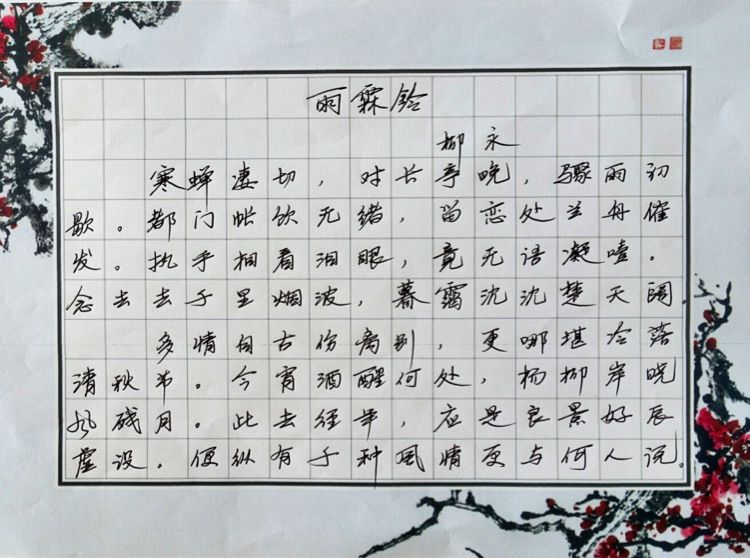 雨霖鈴
柳永
寒蝉凄切,对长亭晚,骤雨初
歇。都门帐饮无绪,留恋处兰舟催
发。执手相看泪眼,竟无语凝噎。
念去去千里烟波,暮霭沈沈楚天阔。
多情自古伤离别,更哪堪冷落
清秋节。今宵酒醒何处,杨柳岸晓
风残月。此去经年,应是良景好辰
虚设。便纵有千种风情更与何人说。